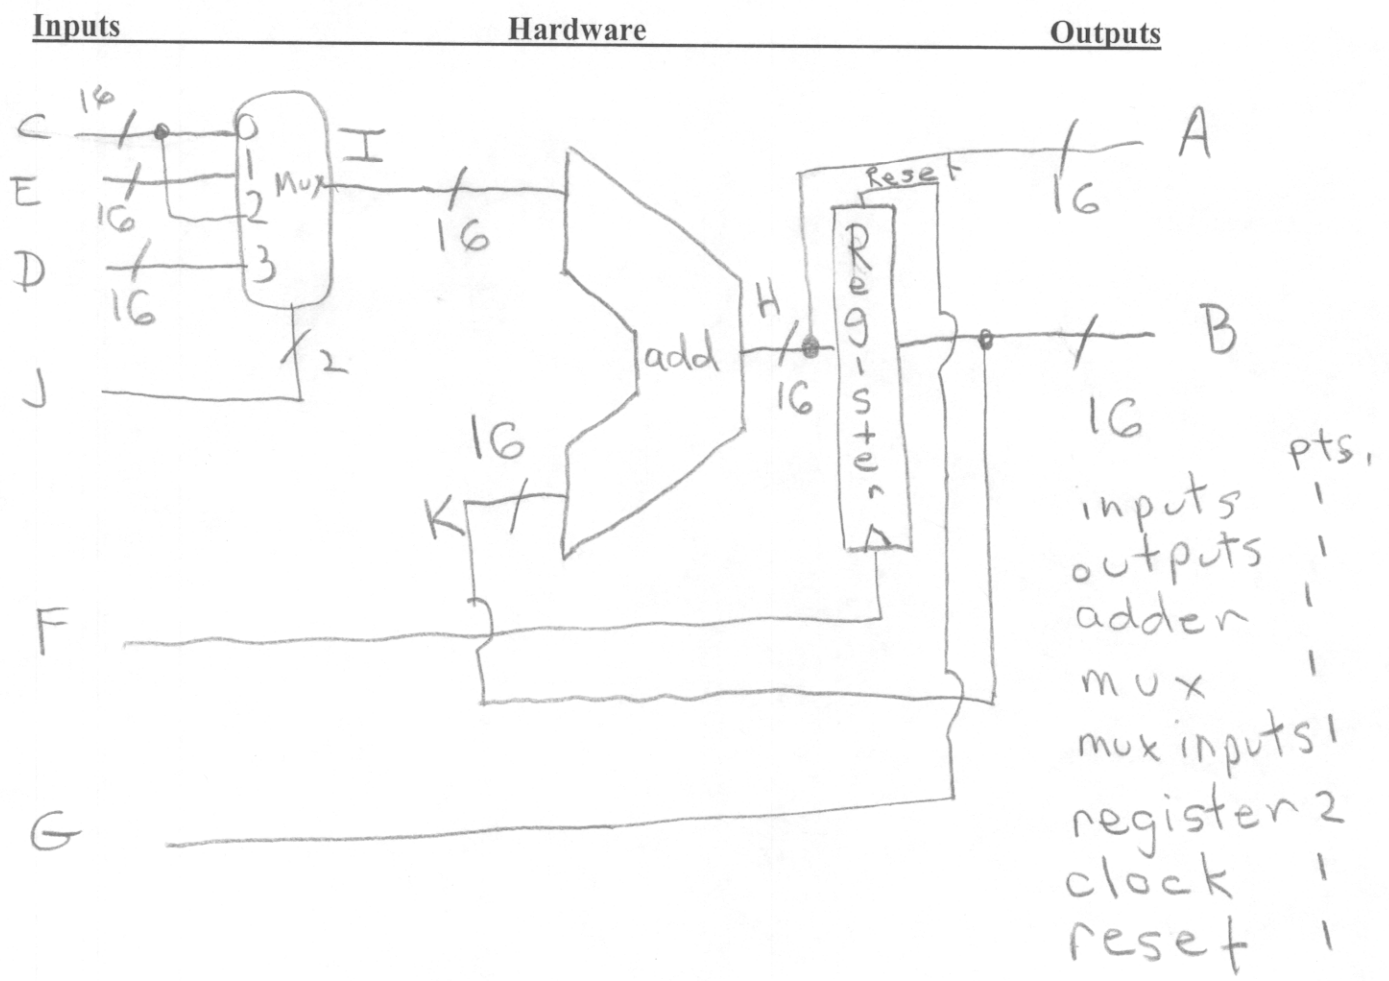 Inputs Hardware Outputs
C 16 0 I 16 A
E 16 1 Mux 16 Reset
2
D 16 3
J 2
add H 16 Register 16 B
K 16
F
G
pts.
inputs 1
outputs 1
adder 1
mux 1
mux inputs 1
register 2
clock 1
reset 1